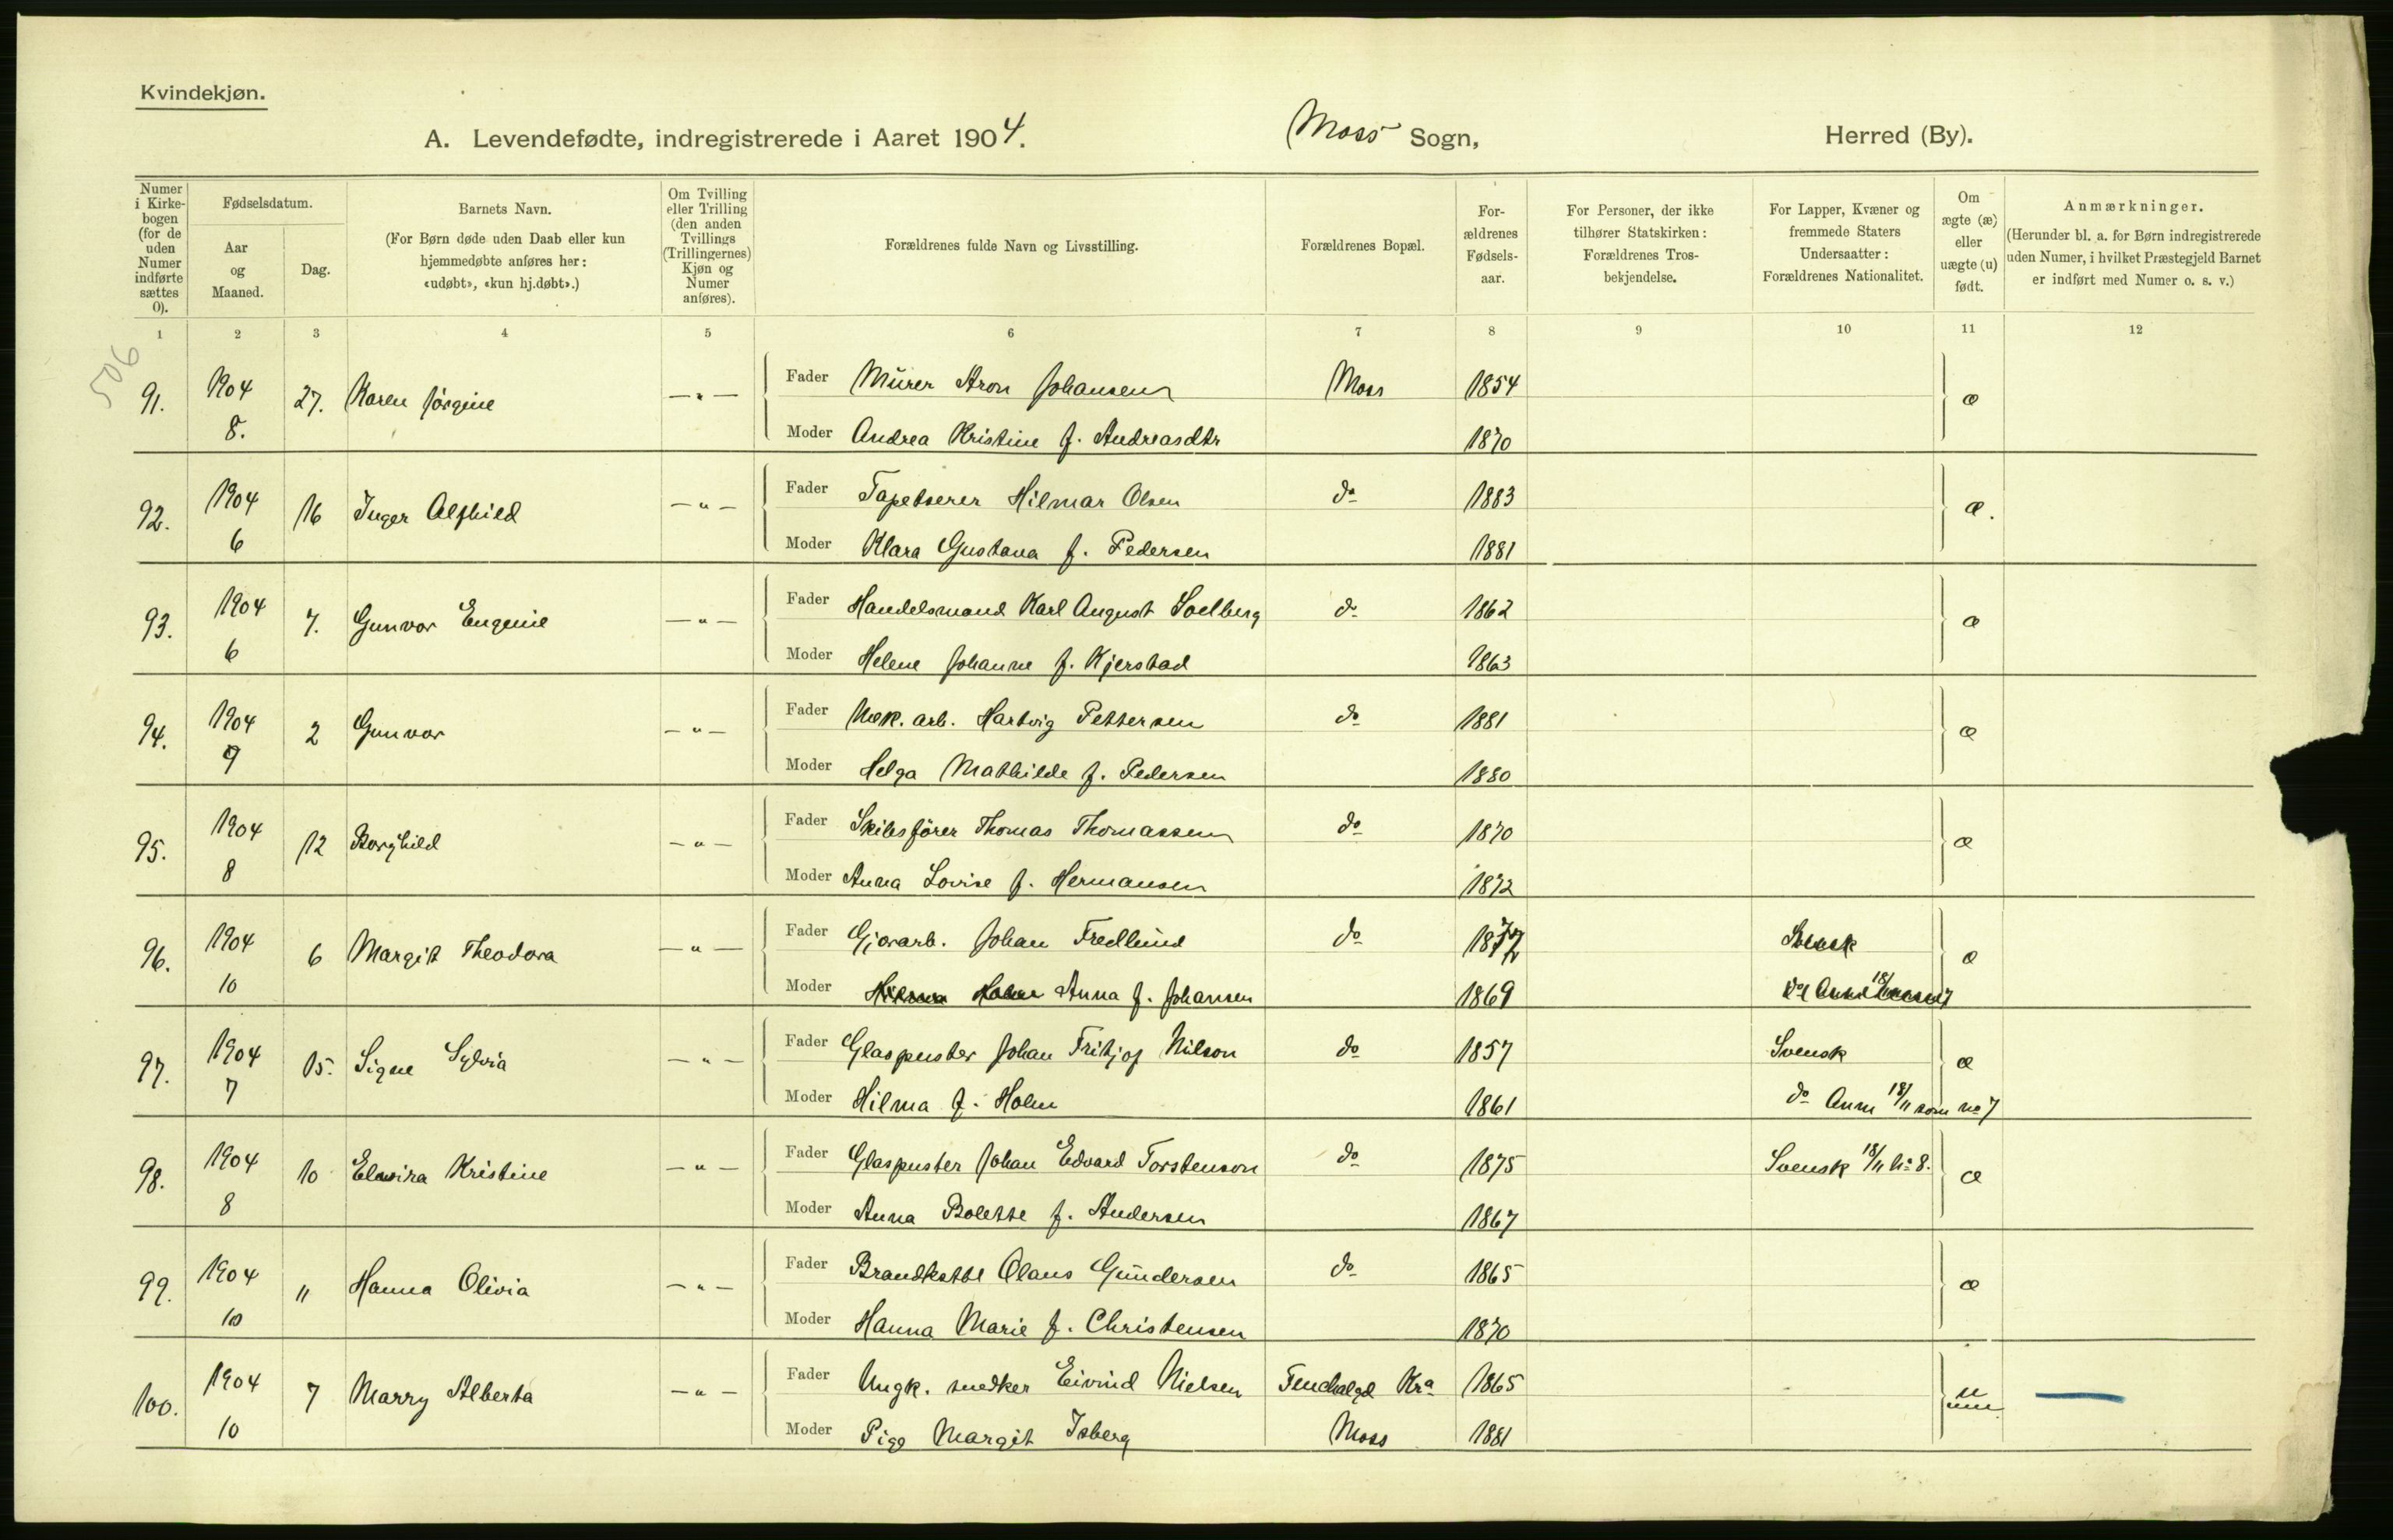 Kvindekjøn.
A. Levendefødte, indregistrerede i Aaret 1904. Moss Sogn, Herred (By).
Numer i Kirkebogen (for de uden Numer indførte sættes 0).
Fødselsdatum.
Aar og Maaned.
Dag.
Barnets Navn.
(For Børn døde uden Daab eller kun hjemmedøbte anføres her: «udøbt», «kun hj.døbt».)
Om Tvilling eller Trilling (den anden Tvillings (Trillingernes) Kjøn og Numer anføres).
Forældrenes fulde Navn og Livsstilling.
Forældrenes Bopæl.
For-ældrenes Fødsels-aar.
For Personer, der ikke tilhører Statskirken: Forældrenes Tros-bekjendelse.
For Lapper, Kvæner og fremmede Staters Undersaatter: Forældrenes Nationalitet.
Om ægte (æ) eller uægte (u) født.
Anmærkninger.
(Herunder bl. a. for Børn indregistrerede uden Numer, i hvilket Præstegjeld Barnet er indført med Numer o. s. v.)
1 2 3 4 5 6 7 8 9 10 11 12
506
91. 1904 8. 27. Karen Jörgine — " — Fader Murer Aron Johansen Moss 1854 æ
Moder Andrea Kristine f. Andreasdtr 1870
92. 1904 6 16 Inger Alfhild — " — Fader Tapetserer Hilmar Olsen do 1883 æ.
Moder Klara Gustava f. Pedersen 1881
93. 1904 6 7. Gunvor Eugenie — " — Fader Handelsmand Karl August Solberg do 1862 æ
Moder Helene Johanne f. Kjerstad 1863
94. 1904 9 2 Gunvor — " — Fader Mek. arb. Hartvig Pettersen do 1881 æ
Moder Helga Mathilde f. Pedersen 1880
95. 1904 8 12 Borghild — " — Fader Skibsförer Thomas Thomassen do 1870 æ
Moder Anna Lovise f. Hermansen 1872
96. 1904 10 6 Margit Theodora — " — Fader Gjorarb. Johan Fredlund do 1872 Svensk æ
Moder Hilma Holm Anna f. Johansen 1869
97. 1904 7 15. Signe Sylvia — " — Fader Glaspuster Johan Fritjof Nilson do 1857 Svensk æ
Moder Hilma f. Holm 1861 do Anm 18/11 som no 7
98. 1904 8 10 Elavira Kristine — " — Fader Glaspuster Johan Edvard Torstenson do 1875 Svensk 18/11 No 8. æ
Moder Anna Bolette f. Andersen 1867
99. 1904 10 11 Hanna Olivia — " — Fader Brandkstbl Olaus Gundersen do 1865 æ
Moder Hanna Marie f. Christensen 1870
100. 1904 10 7 Marry Alberta — " — Fader Ungk. snedker Eivind Nielsen Kra 1865 u
Moder Pige Margit Isberg Moss 1881